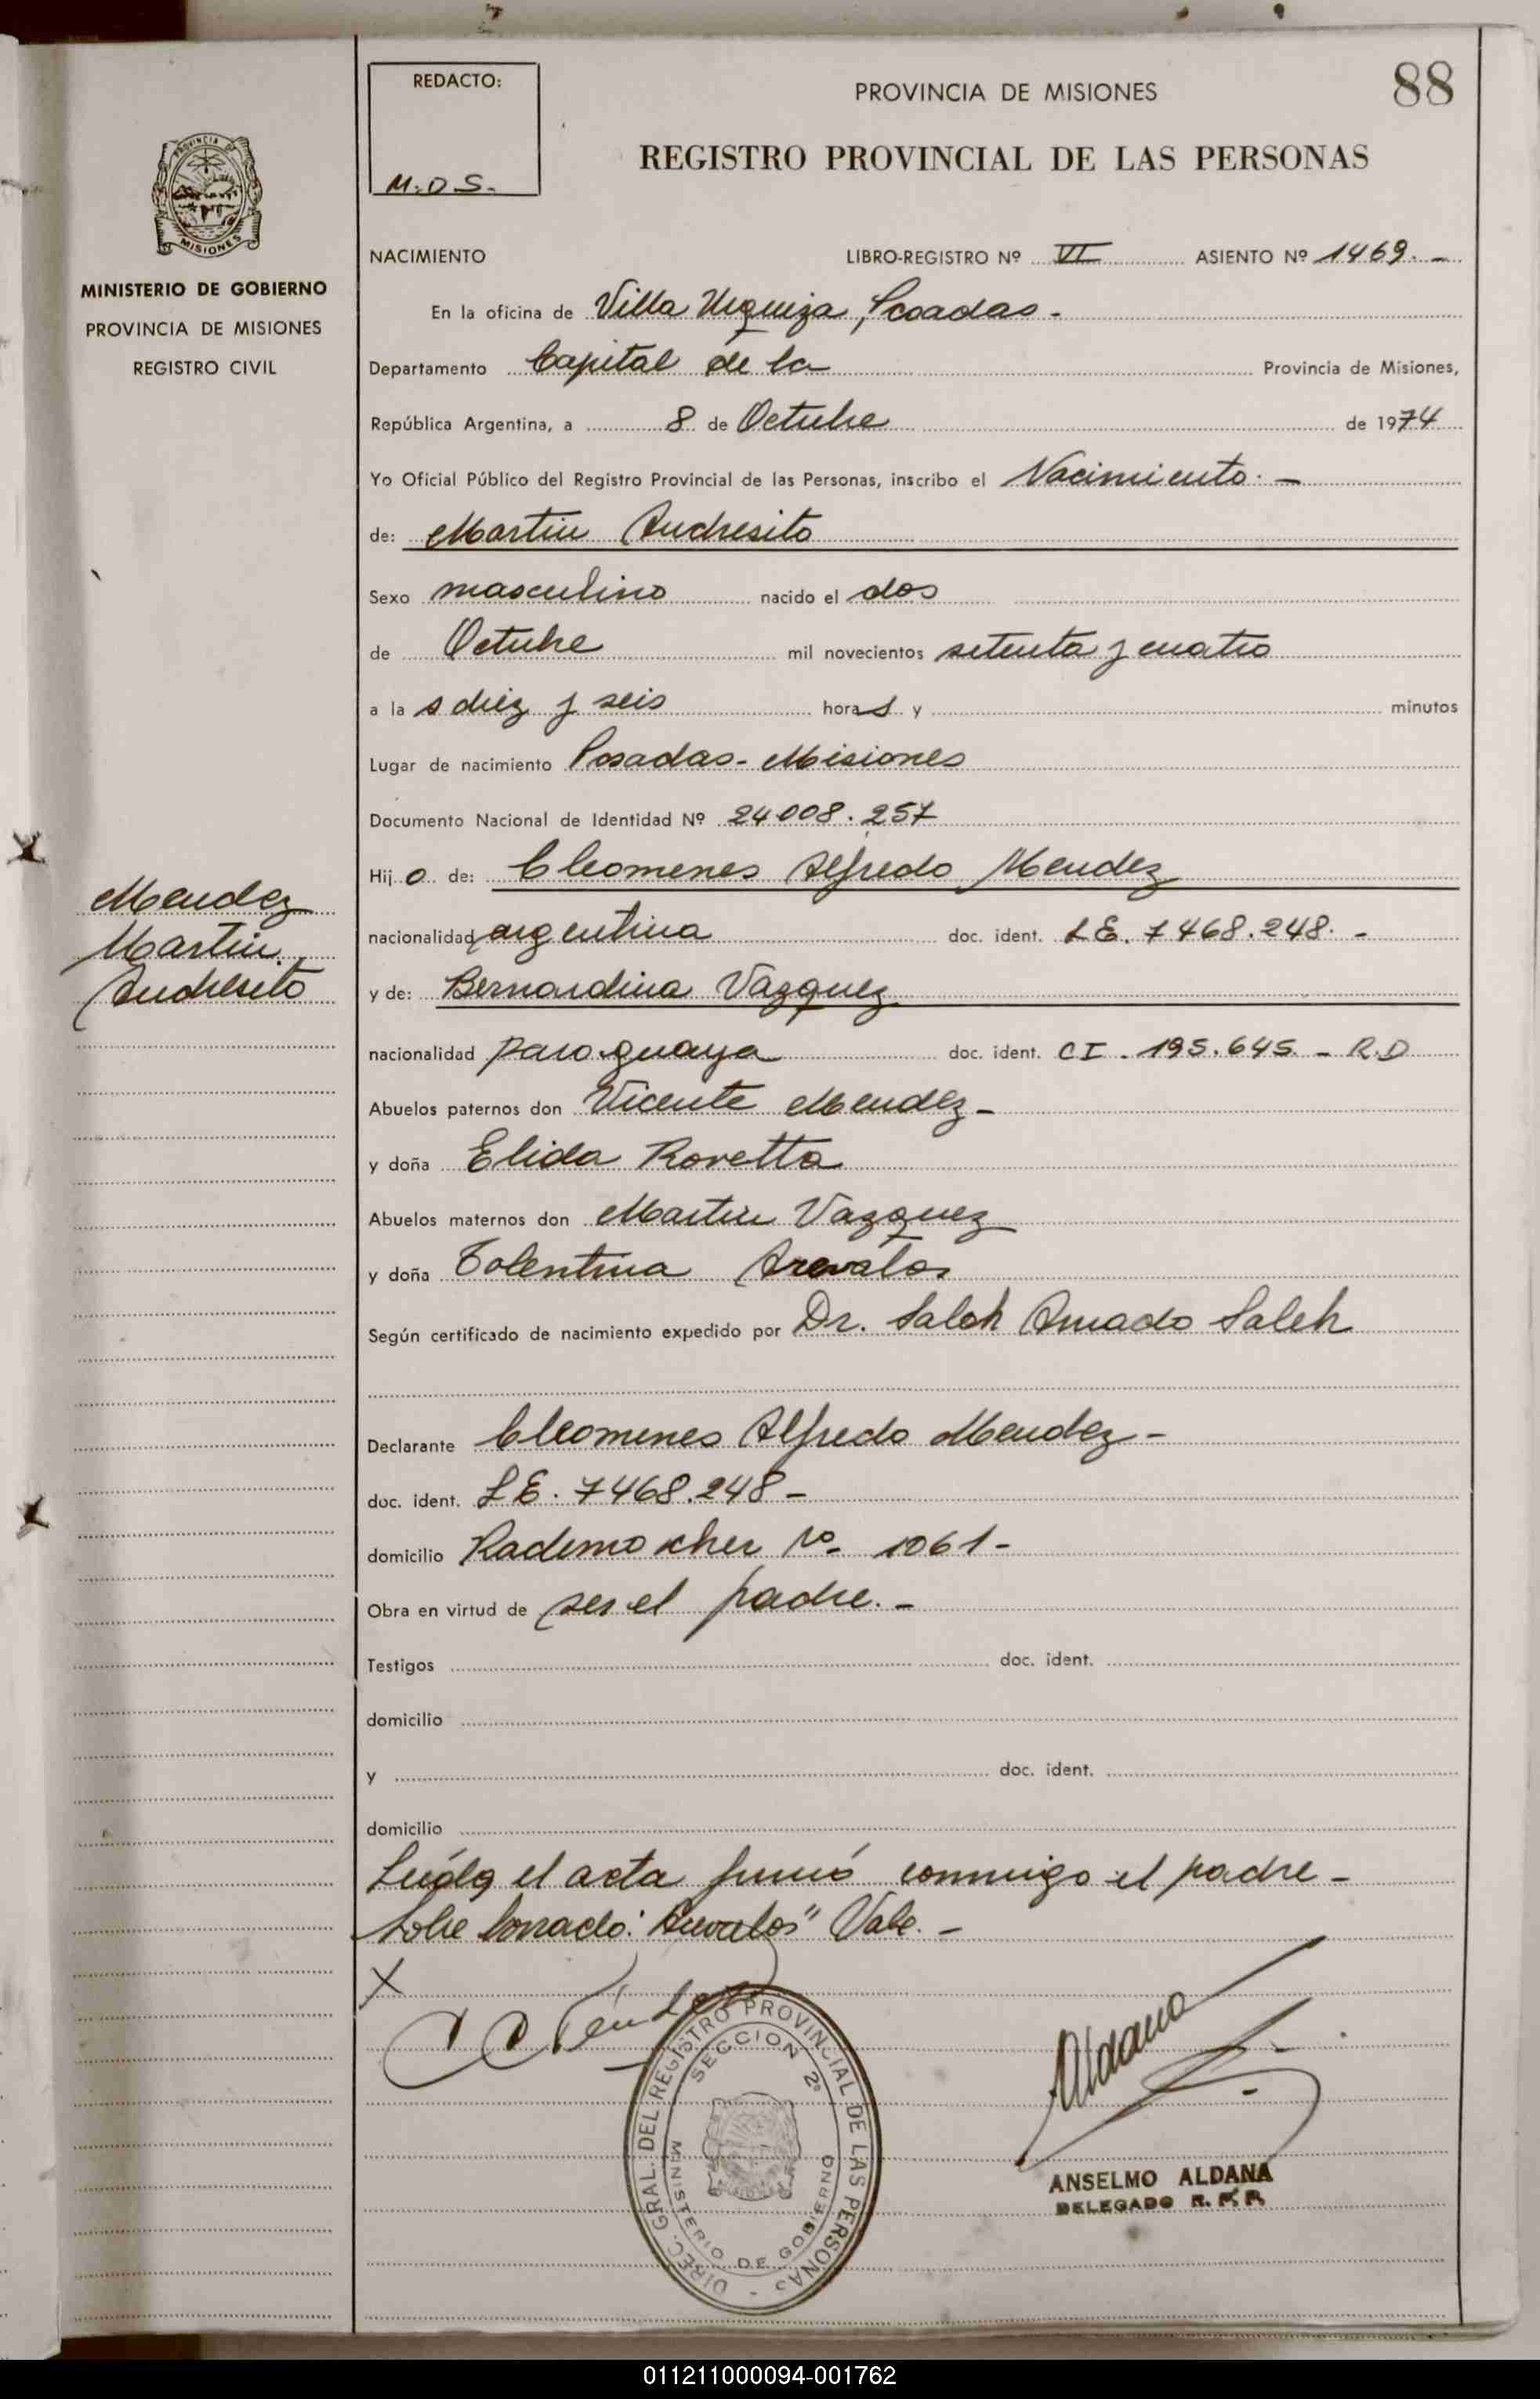 88
REDACTO:
M.D.S.
PROVINCIA DE MISIONES
REGISTRO PROVINCIAL DE LAS PERSONAS
PROVINCIA DE
MISIONES
MINISTERIO DE GOBIERNO
PROVINCIA DE MISIONES
REGISTRO CIVIL
NACIMIENTO LIBRO-REGISTRO Nº VI ASIENTO Nº 1469. -
En la oficina de Villa Urquiza, Posadas -
Departamento Capital de la Provincia de Misiones,
República Argentina, a 8 de Octubre de 1974
Yo Oficial Público del Registro Provincial de las Personas, inscribo el Nacimiento. -
de: Martin Andresito
Sexo masculino nacido el dos
de Octubre mil novecientos setenta y cuatro
a la s diez y seis horas y minutos
Lugar de nacimiento Posadas - Misiones
Documento Nacional de Identidad Nº 24008.257
Hijo de: Cleomenes Alfredo Mendez
nacionalidad argentina doc. ident. LE. 7468.248. -
y de: Bernardina Vazquez
nacionalidad paraguaya doc. ident. CI. 195.645. - R.D
Abuelos paternos don Vicente Mendez -
y doña Elida Rovetta
Abuelos maternos don Martin Vazquez
y doña Tolentina Arevalos
Según certificado de nacimiento expedido por Dr. Saleh Amado Saleh
Declarante Cleomenes Alfredo Mendez -
doc. ident. LE. 7468.248 -
domicilio Rademacher Nº 1061 -
Obra en virtud de ser el padre. -
Testigos doc. ident.
domicilio
y doc. ident.
domicilio
Leída el acta firmó conmigo el padre -
Sobre borrado: "Arevalos" Vale. -
Mendez
Martin
Andresito
X
Aldana
DIREC. GRAL. DEL REGISTRO PROVINCIAL DE LAS PERSONAS -
SECCION 2ª
MINISTERIO DE GOBIERNO
ANSELMO ALDANA
DELEGADO R. P. P.
011211000094-001762